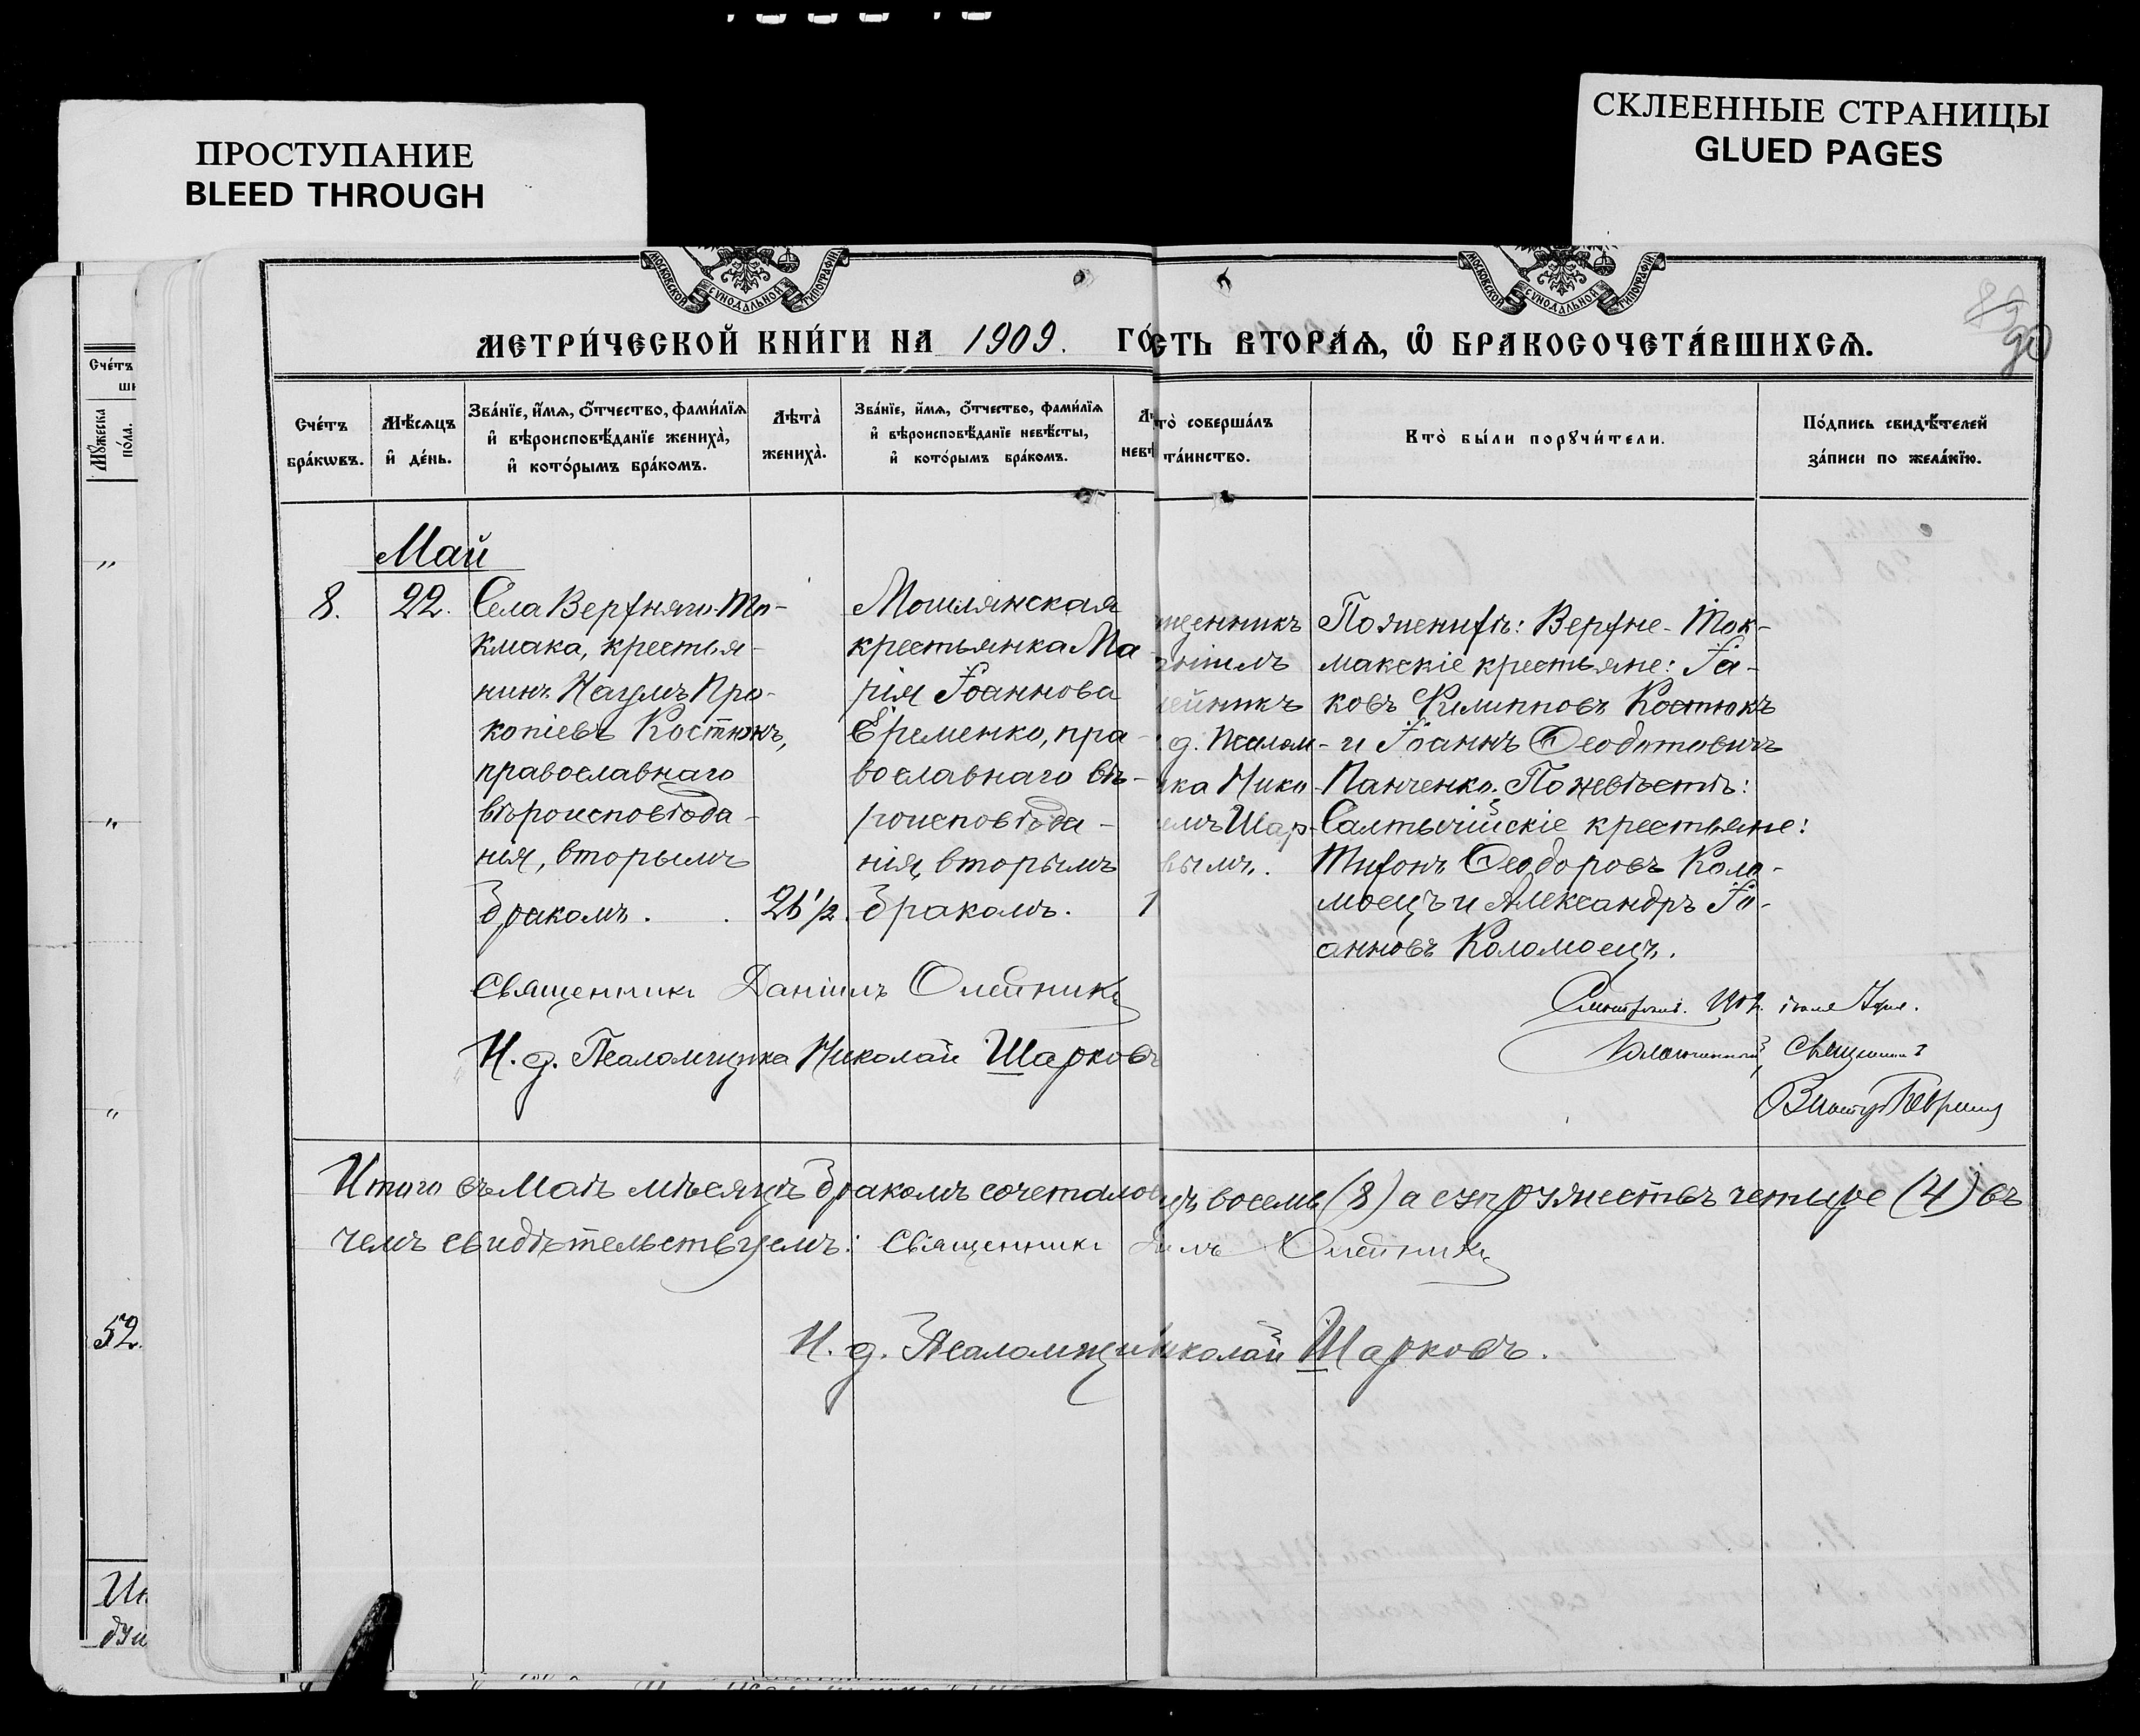 ПРОСТУПАНИЕ
BLEED THROUGH
СКЛЕЕННЫЕ СТРАНИЦЫ
GLUED PAGES
МОСКОВСКОЙ СѴНОДАЛЬНОЙ ТИПОГРАФІИ
МОСКОВСКОЙ СѴНОДАЛЬНОЙ ТИПОГРАФІИ
МЕТРИ́ЧЕСКОЙ КНИ́ГИ НА 1909. ГО́
СТЬ ВТОРА́Ѧ, Ѽ БРАКОСОЧЕТА́ВШИХСѦ.
90
Сче́тъ
Мꙋ́жеска
по́ла.
Сче́тъ
бра́кѡвъ.
Мѣ́сѧцъ
и҆ де́нь.
Зва́нїе, и҆́мѧ, ѻ҆́тчество, фами́лїѧ
и҆ вѣроисповѣ́данїе жениха̀,
и҆ кото́рымъ бра́комъ.
Лѣта̀
жениха̀.
Зва́нїе, и҆́мѧ, ѻ҆́тчество, фами́лїѧ
и҆ вѣроисповѣ́данїе невѣ́сты,
и҆ кото́рымъ бра́комъ.
Лѣ
невѣ
то̀ соверша́лъ
та́инство.
Кто̀ бы́ли порꙋчи́тели.
По́дпись свидѣ́телей
за́писи по жела́нїю.
Май
8.
22.
Села Верхняго-То-
кмака, крестья-
нинъ Наумъ Про-
копіевъ Костюкъ,
православнаго
вѣроисповѣда-
нія, вторымъ
бракомъ.
26 1/2.
крестьянка Ма-
рія Іоаннова
Еременко, пра-
вославнаго вѣ-
роисповѣда-
нія, вторымъ
бракомъ.
1
щенникъ
ніилъ
ейникъ
д. Псалом-
ка Нико-
емъ Шар-
вымъ.
По женихѣ: Верхне-Ток-
макскіе крестьяне: Іа-
ковъ Филипповъ Костюкъ
и Іоаннъ Ѳеодотовичъ
Панченко. По невѣстѣ:
Салтычійскіе крестьяне:
Тихонъ Ѳеодоровъ Коло-
моецъ и Александръ Іо-
анновъ Коломоецъ.
Священникъ Даніилъ Олейникъ
И. д. Псаломщика Николай Шарковъ
Священникъ
Итого въ Маѣ мѣсяцѣ бракомъ сочетало
цъ восемь (8) а супружествъ четыре (4) въ
чемъ свидѣтельствуемъ: Священникъ
илъ Олейникъ
И. д. Псаломщи
иколай Шарковъ.
52.